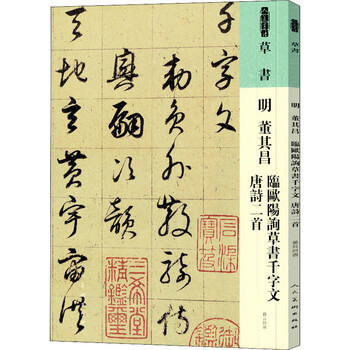 草書
明 董其昌 臨歐陽詢草書千字文
唐詩二首
千字文
勅員外散騎侍
興嗣次韻
天地玄黃宇宙洪
石渠
寶笈
三希堂
精鑑璽
草書
明 董其昌 臨歐陽詢草書千字文 唐詩二首
人民美術出版社